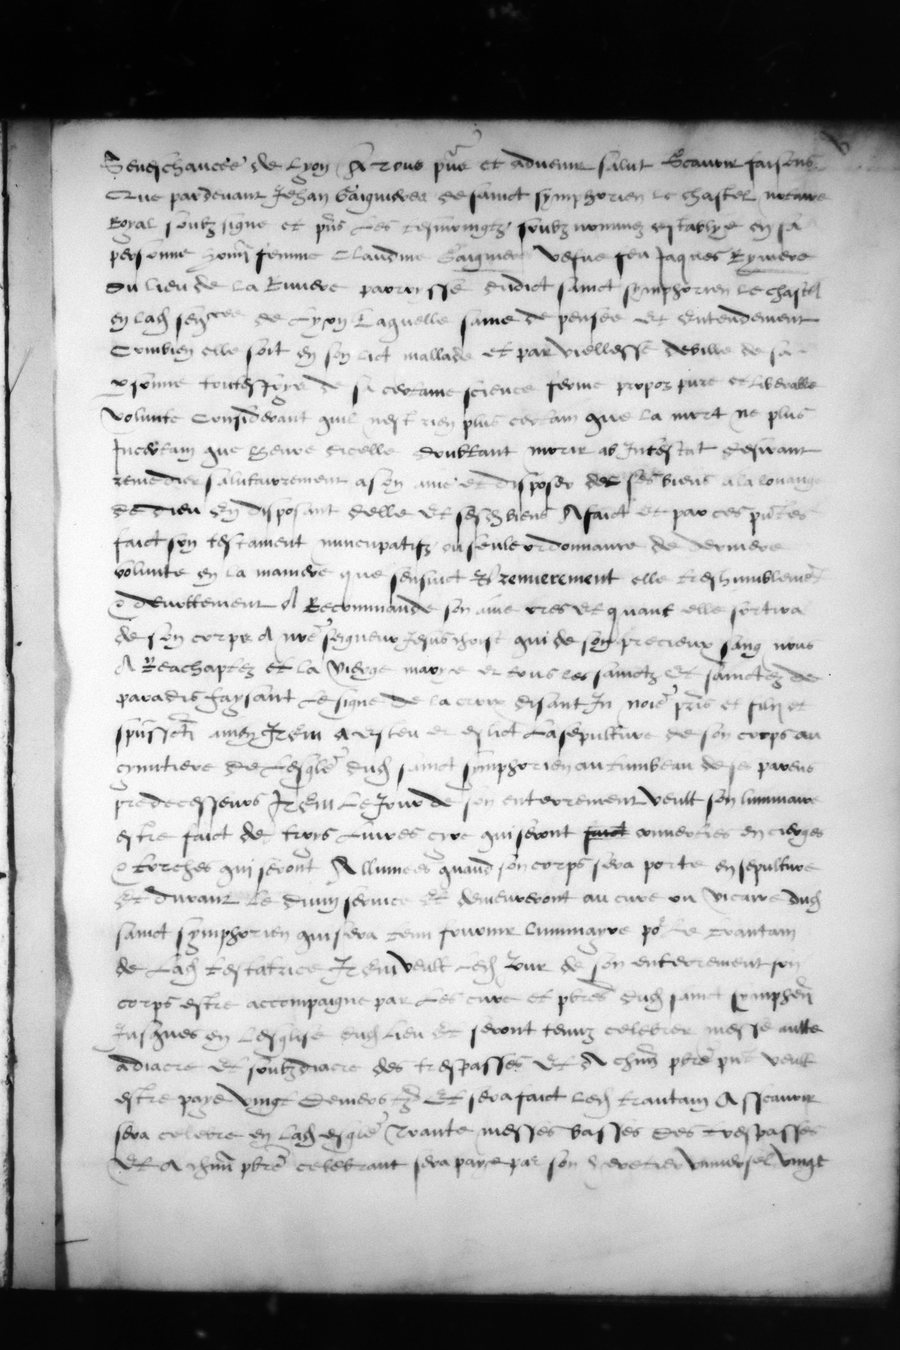 Seneschaucee de Lyon A tous pñs et advenir salut Scavoir faisons
Que pardevant Jehan Gaignieres de sainct symphorien le chastel notaire
Royal soubz signe et pñs les tesmoingtz soubz nommez establye en sa
personne honñ femme Claudine Gaigniere vefve feu Jaques Ryviere
du lieu de la Riviere parroysse dudict sainct symphorien le chastel
en lad senẽee de Lyon Laquelle saine de pensee et entendement
Combien elle soit en son lict mallade et par viellesse debille de sa
psonne toutesfoys de sa certaine science ferme propoz pure et liberalle
volunte Considerant quil nest rien plus certain que la mort ne plus
Incertain que lheure dicelle doubtant morir ab Intestat desirant
remedier salutairement a son ame et disposer de ses biens a la louange
de dieu En disposant delle et sesd biens A faict et par ces pñtes
faict son testament nuncupatifz ou seule ordonnance de derniere
volunte en la maniere que sensuict Et premierement elle treshumblemẽt
& devottement A Recommande son ame tres et quant elle sortira
de son corps A nrẽ seigneur Jesus christ qui de son precieux sang nous
A Reachaptez et la vierge marye et tous les sainctz et sainctez de
paradis faysant le signe de la croix disant In noiẽ prĩs et filij et
spũssctĩ amen Item A esleu et eslict la sepulture de son corps au
cymitiere de lesglẽ dud sainct symphorien au tumbeau de ses parens
predecesseurs Item Le Jour de son enterrement veult son luminaire
estre faict de trois livres cire qui seront converties en cierges
& torches qui seront Allumees quand son corps sera porte en sepulture
Et durant le divin service Et demeureront au cure ou vicaire dud
sainct symphorien qui sera tenu fournir luminayre po' le trantain
de lad testatrice Item veult led Jour de son enterrement son
corps estre accompaigne par les cure et pbres dud sainct symphoriẽ
Jusques en lesglise dud lieu Et seront tenuz celebrer messe
a diacre et soubzdiacre des trespasses Et A chũn pbrẽ pñt veult
estre paye vingt deniers tz Et sera faict led trantain Assçavoir
sera celebre en lad esglẽ Trante messes basses des trespasses
Et A chũn pbrẽ celebrant sera paye par son heretier universel vingt